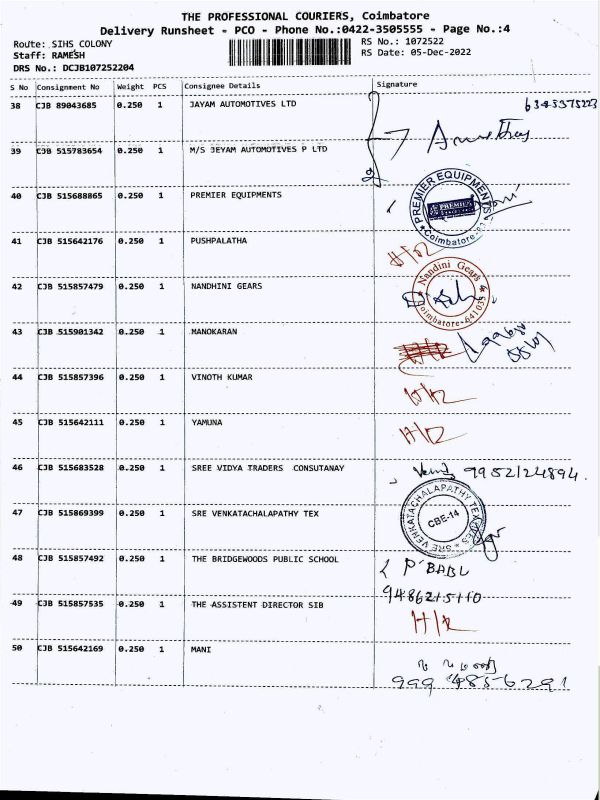 THE PROFESSIONAL COURIERS, Coimbatore
Delivery Runsheet - PCO - Phone No.:0422-3505555 - Page No.:4
Route: SIHS COLONY
Staff: RAMESH
DRS No.: DCJB107252204
RS No.: 1072522
RS Date: 05-Dec-2022
S No Consignment No Weight PCS Consignee Details Signature
38 CJB 89043685 0.250 1 JAYAM AUTOMOTIVES LTD
39 CJB 515783654 0.250 1 M/S JEYAM AUTOMOTIVES P LTD
40 CJB 515688865 0.250 1 PREMIER EQUIPMENTS
PREMIER EQUIPMENTS
PREMIER
Coimbatore
41 CJB 515642176 0.250 1 PUSHPALATHA
42 CJB 515857479 0.250 1 NANDHINI GEARS
Nandini Gears
Coimbatore-641033
43 CJB 515901342 0.250 1 MANOKARAN
44 CJB 515857396 0.250 1 VINOTH KUMAR
45 CJB 515642111 0.250 1 YAMUNA
46 CJB 515683528 0.250 1 SREE VIDYA TRADERS CONSUTANAY
9952124894.
47 CJB 515869399 0.250 1 SRE VENKATACHALAPATHY TEX
SRE VENKATACHALAPATHY TEXTILES
CBE-14
48 CJB 515857492 0.250 1 THE BRIDGEWOODS PUBLIC SCHOOL
P BABU
9486215110
49 CJB 515857535 0.250 1 THE ASSISTENT DIRECTOR SIB
50 CJB 515642169 0.250 1 MANI
999 4856291